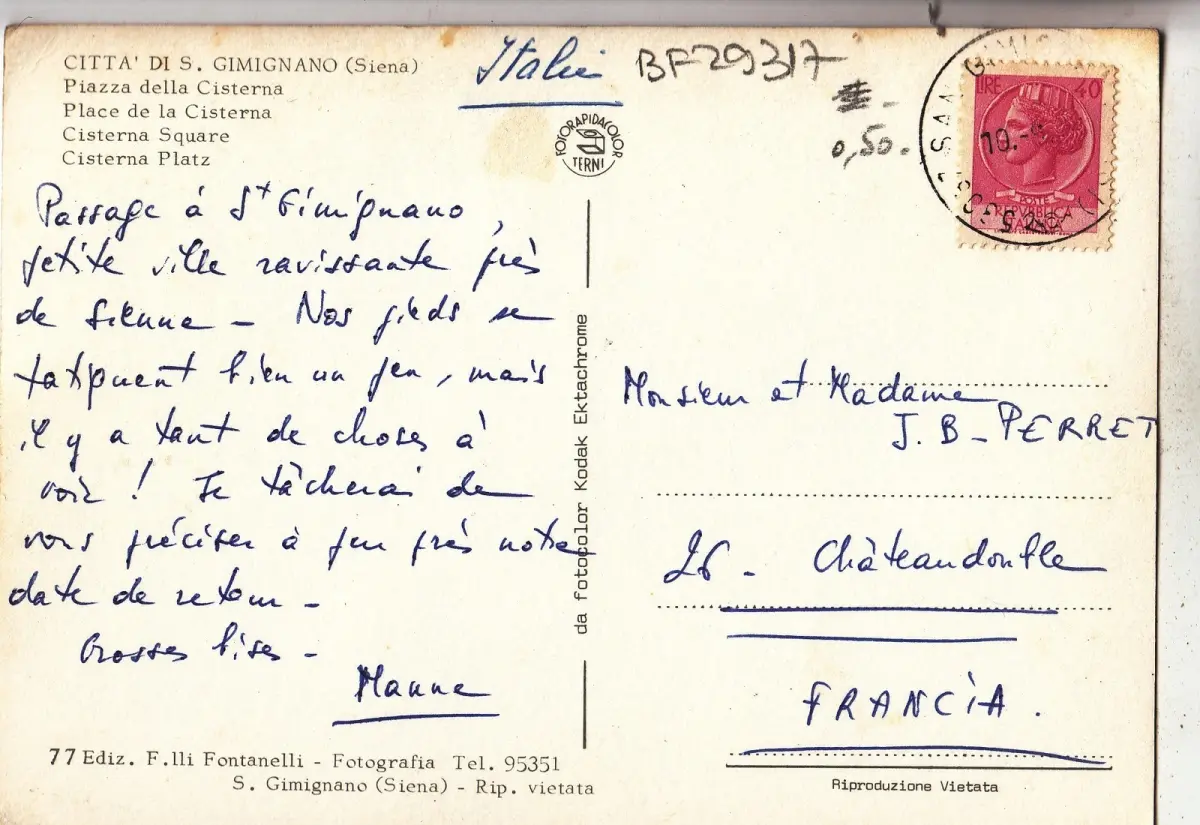 CITTA' DI S. GIMIGNANO (Siena)
Piazza della Cisterna
Place de la Cisterna
Cisterna Square
Cisterna Platz
Italie
BF29317
0,50.
FOTORAPIDACOLOR
TERNI
LIRE 40
POSTE
REPVBBLICA
ITALIANA
SAN GIMIGNANO
10.-
Passage à St Gimignano,
petite ville ravissante près
de Sienne - Nos pieds se
fatiguent bien un peu, mais
il y a tant de choses à
voir ! Je tâcherai de
vous préciser à peu près notre
date de retour -
Grosses bises -
da fotocolor Kodak Ektachrome
Monsieur et Madame
J. B - PERRET
26 - Châteaudouble
FRANCIA.
77 Ediz. F.lli Fontanelli - Fotografia Tel. 95351
S. Gimignano (Siena) - Rip. vietata
Riproduzione Vietata